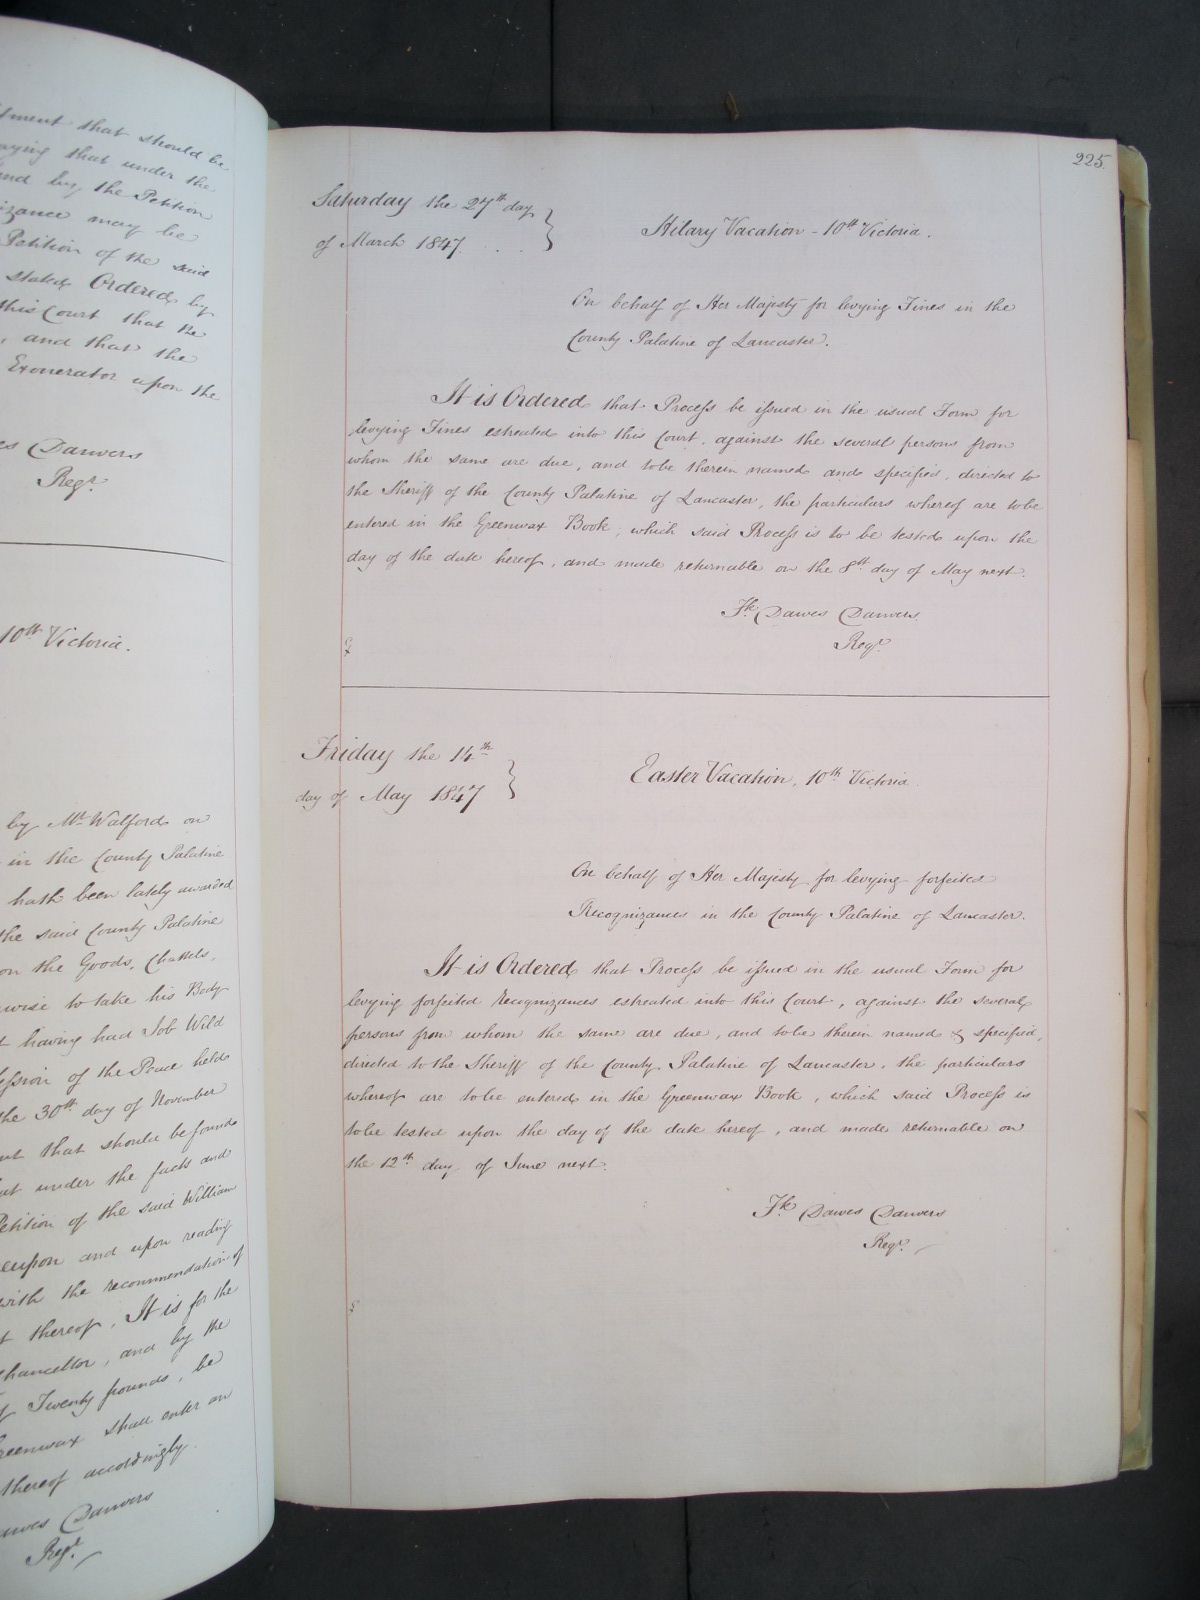 tment that should be
aying that under the
and by the Petition
izance may be
Petition of the said
stated Ordered by
this Court that the
, and that the
Exonerator upon the
es Danvers
Regr.
10th Victoria.
by Mr. Walford on
in the County Palatine
hath been lately awarded
the said County Palatine
on the Goods, Chattels,
wise to take his Body
t having had Job Wild
ession of the Peace held
the 30th day of November
ut that should be found
at under the facts and
Petition of the said William
eupon and upon reading
with the recommendation of
t thereof, It is for the
Chancellor, and by the
f Twenty pounds, be
reenwax shall enter an
thereof accordingly.
awes Danvers
Regr.
225.
Saturday the 27th day
of March 1847. . .
Hilary Vacation - 10th Victoria.
On behalf of Her Majesty for levying Fines in the
County Palatine of Lancaster.
It is Ordered that Process be issued in the usual Form for
levying Fines estreated into this Court, against the several persons from
whom the same are due, and to be therein named and specified, directed to
the Sheriff of the County Palatine of Lancaster, the particulars whereof are to be
entered in the Greenwax Book; which said Process is to be tested upon the
day of the date hereof, and made returnable on the 8th day of May next.
Fk. Dawes Danvers
Regr.
Friday the 14th
day of May 1847
Easter Vacation, 10th Victoria
On behalf of Her Majesty for levying forfeited
Recognizances in the County Palatine of Lancaster.
It is Ordered that Process be issued in the usual Form for
levying forfeited Recognizances estreated into this Court, against the several
persons from whom the same are due, and to be therein named & specified,
directed to the Sheriff of the County Palatine of Lancaster, the particulars
whereof are to be entered in the Greenwax Book, which said Process is
to be tested upon the day of the date hereof, and made returnable on
the 12th day of June next.
Fk. Dawes Danvers
Regr.